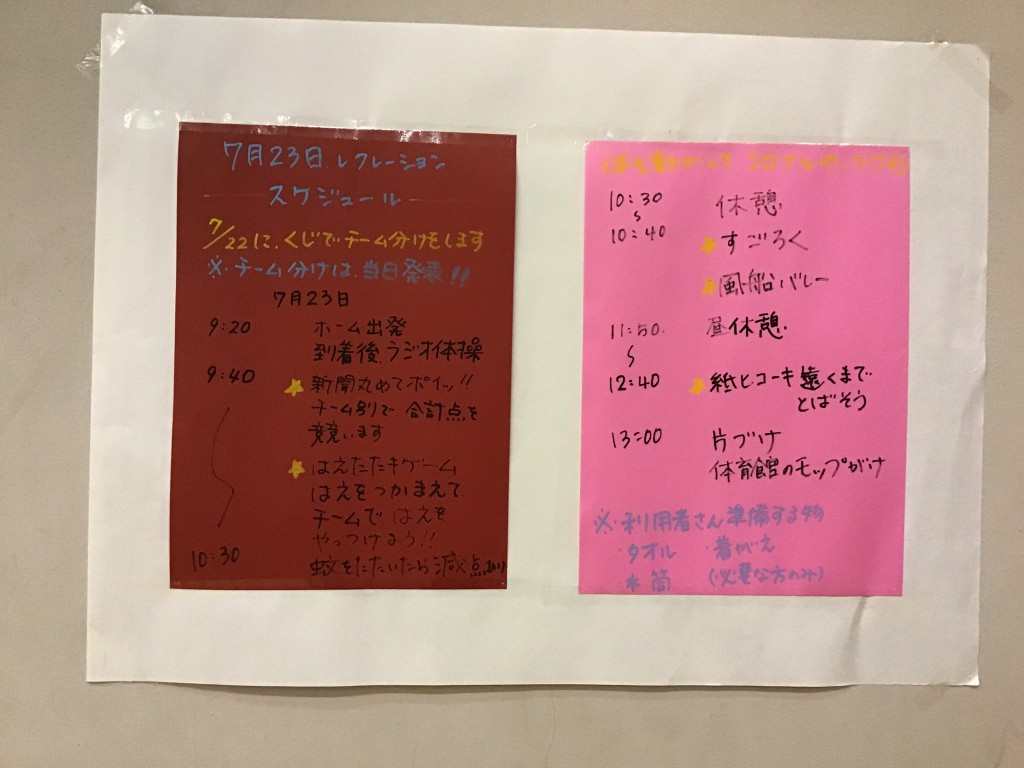 7月23日、レクレーション
スケジュール
7/22に、くじでチーム分けをします
※・チーム分けは、当日発表!!
7月23日
9:20 ホーム出発
到着後、ラジオ体操
9:40 新聞丸めてポイッ!!
チーム別で 合計点を
競います
はえたたきゲーム
はえをつかまえて
チームで はえを
やっつけよう!!
10:30 蚊をたたいたら減点あり
10:30 休憩
〜
10:40 すごろく
風船バレー
11:50. 昼休憩
〜
12:40 紙ヒコーキ 遠くまで
とばそう
13:00 片づけ
体育館のモップがけ
※・利用者さん準備する物
・タオル ・着がえ
・水筒 (必要な方のみ)